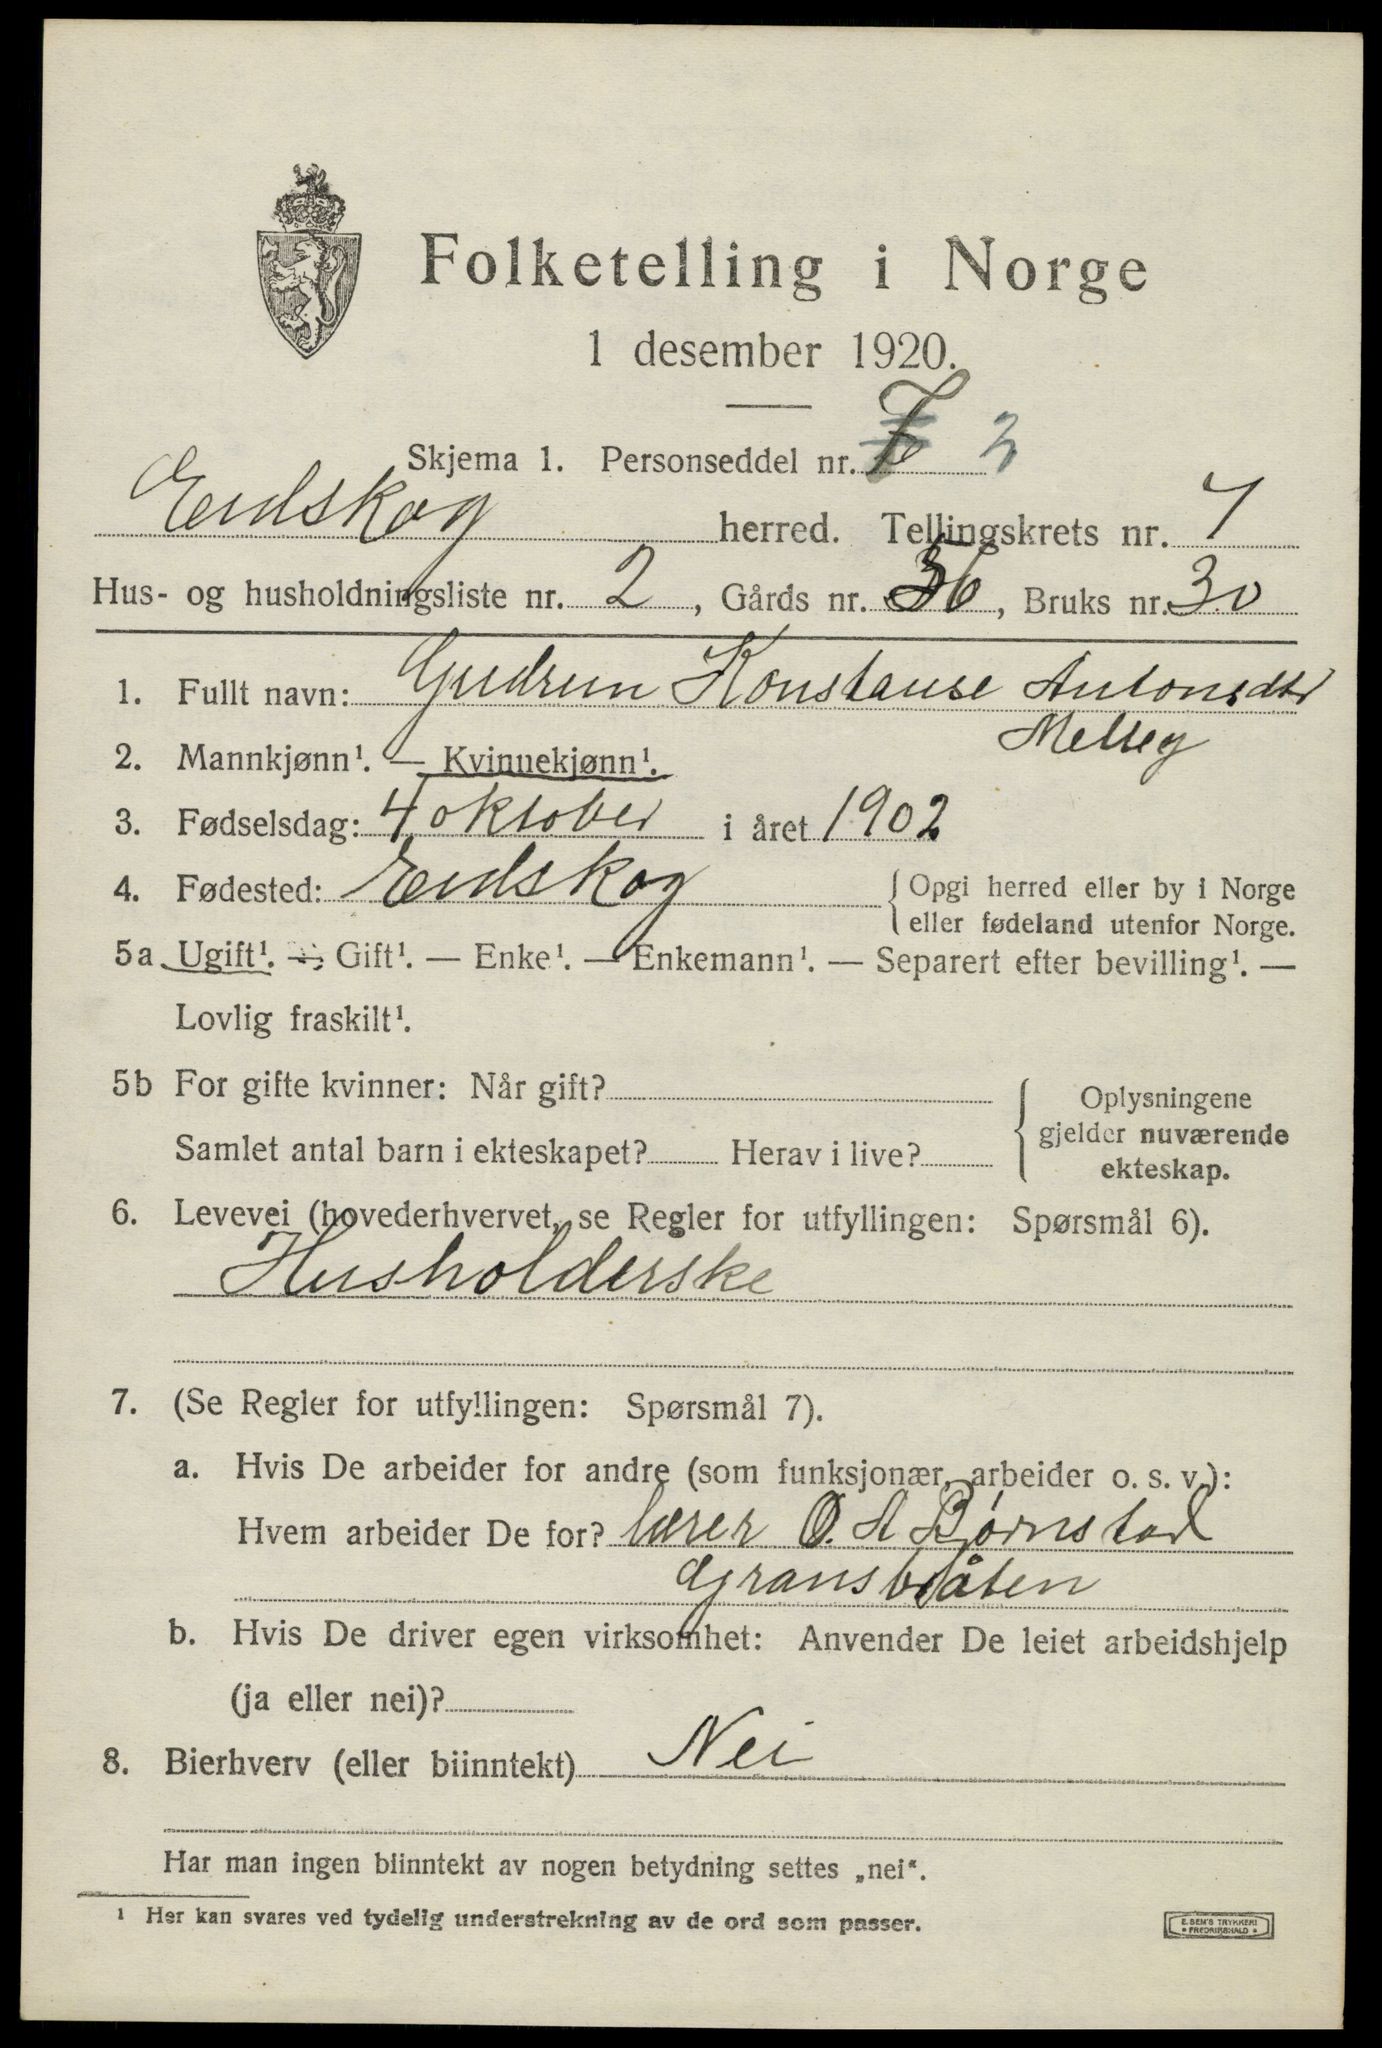 Folketelling i Norge
1 desember 1920.
Skjema 1. Personseddel nr. 7 2
Eidskog herred. Tellingskrets nr. 7
Hus- og husholdningsliste nr. 2, Gårds nr. 56, Bruks nr. 30
1. Fullt navn: Gudrun Konstanse Antonsdtr
Melleg
2. Mannkjønn¹. — Kvinnekjønn¹.
3. Fødselsdag: 4 oktober i året 1902
4. Fødested: Eidskog { Opgi herred eller by i Norge
eller fødeland utenfor Norge.
5a Ugift¹. — Gift¹. — Enke¹. — Enkemann¹. — Separert efter bevilling¹. —
Lovlig fraskilt¹.
5b For gifte kvinner: Når gift?
Samlet antal barn i ekteskapet? Herav i live?
{ Oplysningene
gjelder nuværende
ekteskap.
6. Levevei (hovederhvervet, se Regler for utfyllingen: Spørsmål 6).
Husholderske
7. (Se Regler for utfyllingen: Spørsmål 7).
a. Hvis De arbeider for andre (som funksjonær, arbeider o. s. v.):
Hvem arbeider De for? lærer O. A Bjørnstad
Gransbråten
b. Hvis De driver egen virksomhet: Anvender De leiet arbeidshjelp
(ja eller nei)?
8. Bierhverv (eller biinntekt) Nei
Har man ingen biinntekt av nogen betydning settes „nei“.
¹ Her kan svares ved tydelig understrekning av de ord som passer.
E. SEM'S TRYKKERI
• FREDRIKSHALD •